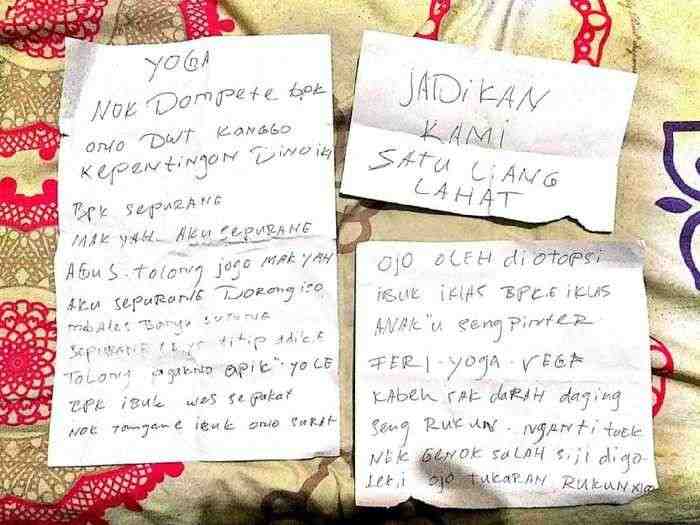 YOGA
NOK Dompete bpk
ONO DWT KANGGO
KEPENTINGAN DINO iki
BPK SEPURANE
MAK YAH AKU SEPURANE
AGUS. tolong jogo MAK YAH
AKU SEPURANE DORONG iso
mbales Banyu SUSUNE
SEPURANE titip adike
Tolong apik" YO LE
BPK iBUK WES SEPAKAT
NOK TANGANE iBUK ONO SURAT
JADIKAN
KAMI
SATU LIANG
LAHAT
OJO OLEH di OTOPSI
iBUK IKLAS BPKE IKLAS
ANAK"U SENG PINTER
FERI - YOGA - VEGA
KABEH SAK DARAH daging
SENG RUKUN. NGANTI TUEK
NEK ENOK SALAH SIJI digo
LEKI OJO TUKARAN RUKUN